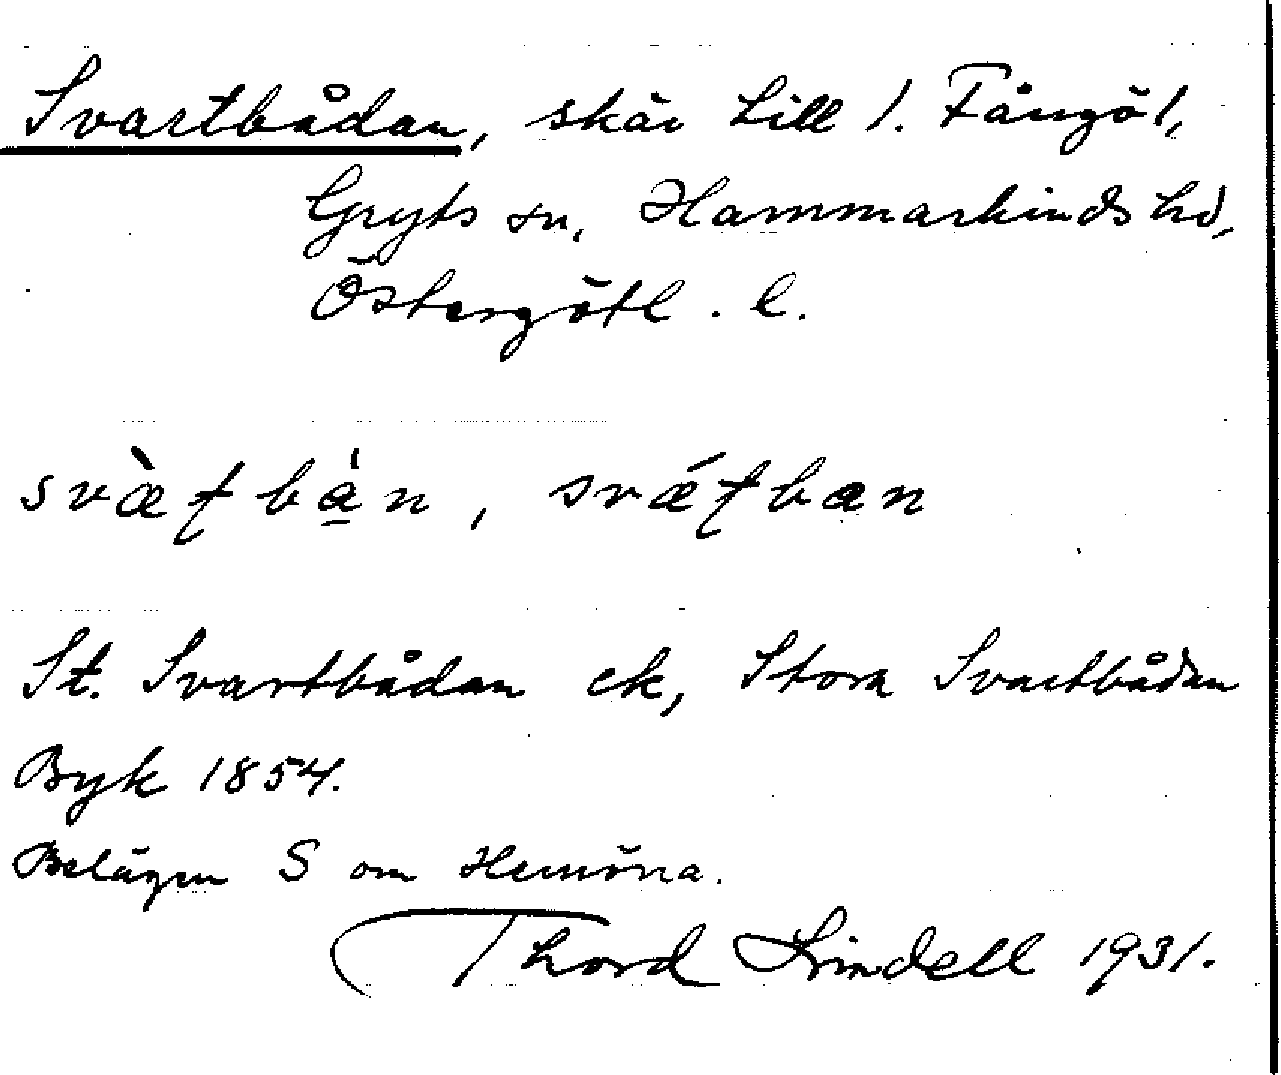 Svartbådan, skär till 1. Fångö 1,
Gryts sn, Hammarkinds hd,
Östergötl. l.
svæ̀ƭbä̀n, svǽƭbæn
St. Svartbådan ek, Stora Svartbådan
Byk 1854.
Belägen S om Hemöna.
Thord Lindell 1931.